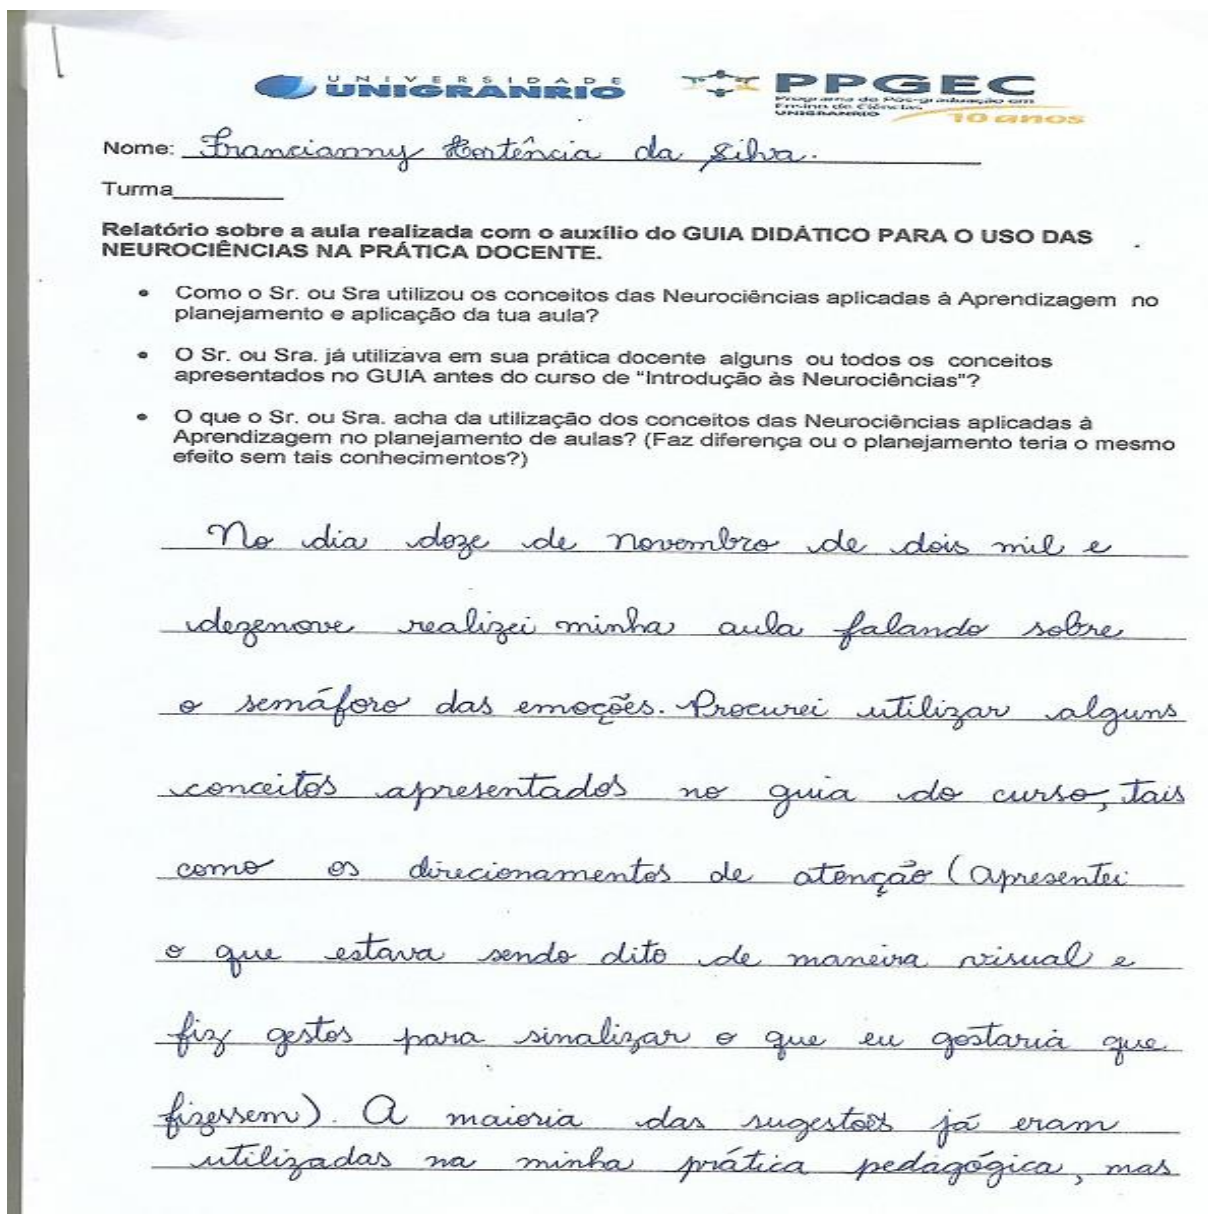 UNIVERSIDADE
UNIGRANRIO
PPGEC
Programa de Pós-graduação em
Ensino de Ciências
UNIGRANRIO
10 anos
Nome: Francianny Hortência da Silva.
Turma________
Relatório sobre a aula realizada com o auxílio do GUIA DIDÁTICO PARA O USO DAS
NEUROCIÊNCIAS NA PRÁTICA DOCENTE.
• Como o Sr. ou Sra utilizou os conceitos das Neurociências aplicadas à Aprendizagem no
planejamento e aplicação da tua aula?
• O Sr. ou Sra. já utilizava em sua prática docente alguns ou todos os conceitos
apresentados no GUIA antes do curso de "Introdução às Neurociências"?
• O que o Sr. ou Sra. acha da utilização dos conceitos das Neurociências aplicadas à
Aprendizagem no planejamento de aulas? (Faz diferença ou o planejamento teria o mesmo
efeito sem tais conhecimentos?)
No dia doze de novembro de dois mil e
dezenove realizei minha aula falando sobre
o semáforo das emoções. Procurei utilizar alguns
conceitos apresentados no guia do curso, tais
como os direcionamentos de atenção (apresentei
o que estava sendo dito de maneira visual e
fiz gestos para sinalizar o que eu gostaria que
fizessem). A maioria das sugestões já eram
utilizadas na minha prática pedagógica, mas